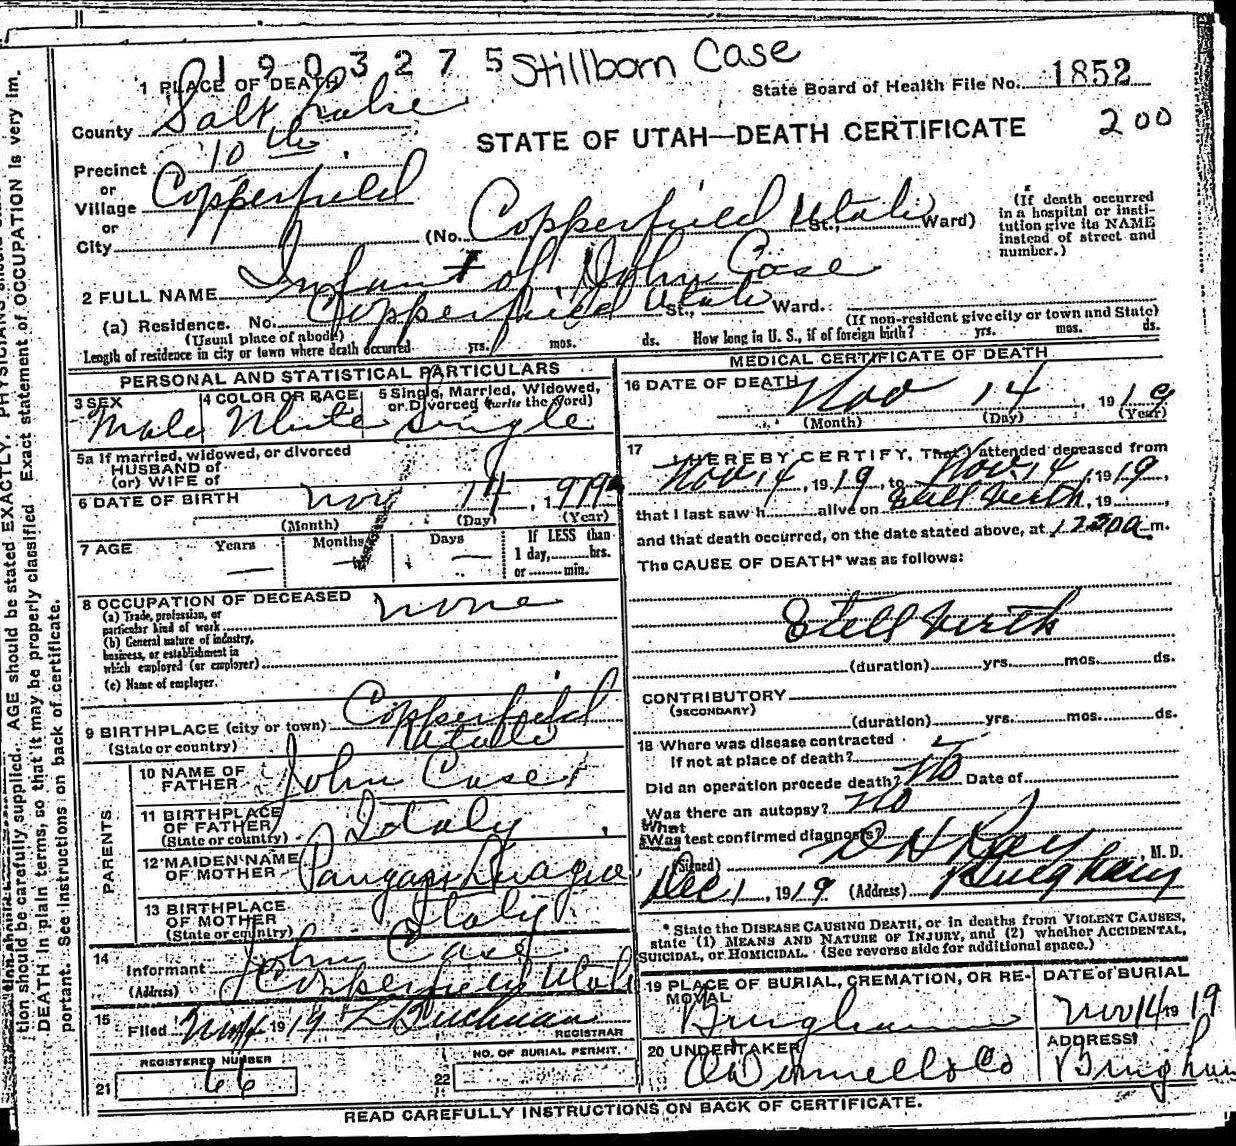 1903275 Stillborn Case
1 PLACE OF DEATH
State Board of Health File No. 1852
County Salt Lake
STATE OF UTAH—DEATH CERTIFICATE 2 00
Precinct 10th
or
Village Copperfield
or
City (No. Copperfield Utah St., Ward)
(If death occurred in a hospital or insti-
tution give its NAME
instead of street and
number.)
2 FULL NAME Infant of John Case
(a) Residence. No. Copperfield Utah St., Ward.
(Usual place of abode) (If non-resident give city or town and State)
Length of residence in city or town where death occurred yrs. mos. ds. How long in U. S., if of foreign birth? yrs. mos. ds.
PERSONAL AND STATISTICAL PARTICULARS
3 SEX 4 COLOR OR RACE 5 Single, Married, Widowed,
or Divorced (write the word)
Male White Single
5a If married, widowed, or divorced
HUSBAND of
(or) WIFE of
6 DATE OF BIRTH Nov 14, 1919
(Month) (Day) (Year)
7 AGE Years Months Days If LESS than
1 day, hrs.
or min.
8 OCCUPATION OF DECEASED none
(a) Trade, profession, or
particular kind of work
(b) General nature of industry,
business, or establishment in
which employed (or employer)
(c) Name of employer
9 BIRTHPLACE (city or town) Copperfield
(State or country) Utah
PARENTS
10 NAME OF
FATHER John Case
11 BIRTHPLACE
OF FATHER Italy
(State or country)
12 MAIDEN NAME
OF MOTHER
13 BIRTHPLACE
OF MOTHER Italy
(State or country)
14
Informant John Case
(Address) Copperfield Utah
15
Filed 1919 Buchman
REGISTRAR
REGISTERED NUMBER
21 66
NO. OF BURIAL PERMIT.
22
MEDICAL CERTIFICATE OF DEATH
16 DATE OF DEATH Nov 14, 1919
(Month) (Day) (Year)
17 I HEREBY CERTIFY, That I attended deceased from
Nov 14, 1919, to Nov 14, 1919,
that I last saw h alive on Still birth, 19
and that death occurred, on the date stated above, at 1220a m.
The CAUSE OF DEATH* was as follows:
Still birth
(duration) yrs. mos. ds.
CONTRIBUTORY
(SECONDARY)
(duration) yrs. mos. ds.
18 Where was disease contracted
If not at place of death?
Did an operation procede death? No Date of
Was there an autopsy? No
What
Was test confirmed diagnosis?
(Signed) D H Ray, M. D.
Dec 1, 1919 (Address) Bingham
* State the DISEASE CAUSING DEATH, or in deaths from VIOLENT CAUSES,
state (1) MEANS AND NATURE OF INJURY, and (2) whether ACCIDENTAL,
SUICIDAL, or HOMICIDAL. (See reverse side for additional space.)
19 PLACE OF BURIAL, CREMATION, OR RE-
MOVAL
Bingham
DATE of BURIAL
Nov 14 1919
20 UNDERTAKER
O'Donnell & Co
ADDRESS
Bingham
READ CAREFULLY INSTRUCTIONS ON BACK OF CERTIFICATE.
tion should be carefully supplied. AGE should be stated EXACTLY. PHYSICIANS should
DEATH in plain terms, so that it may be properly classified. Exact statement of OCCUPATION is very im-
portant. See instructions on back of certificate.